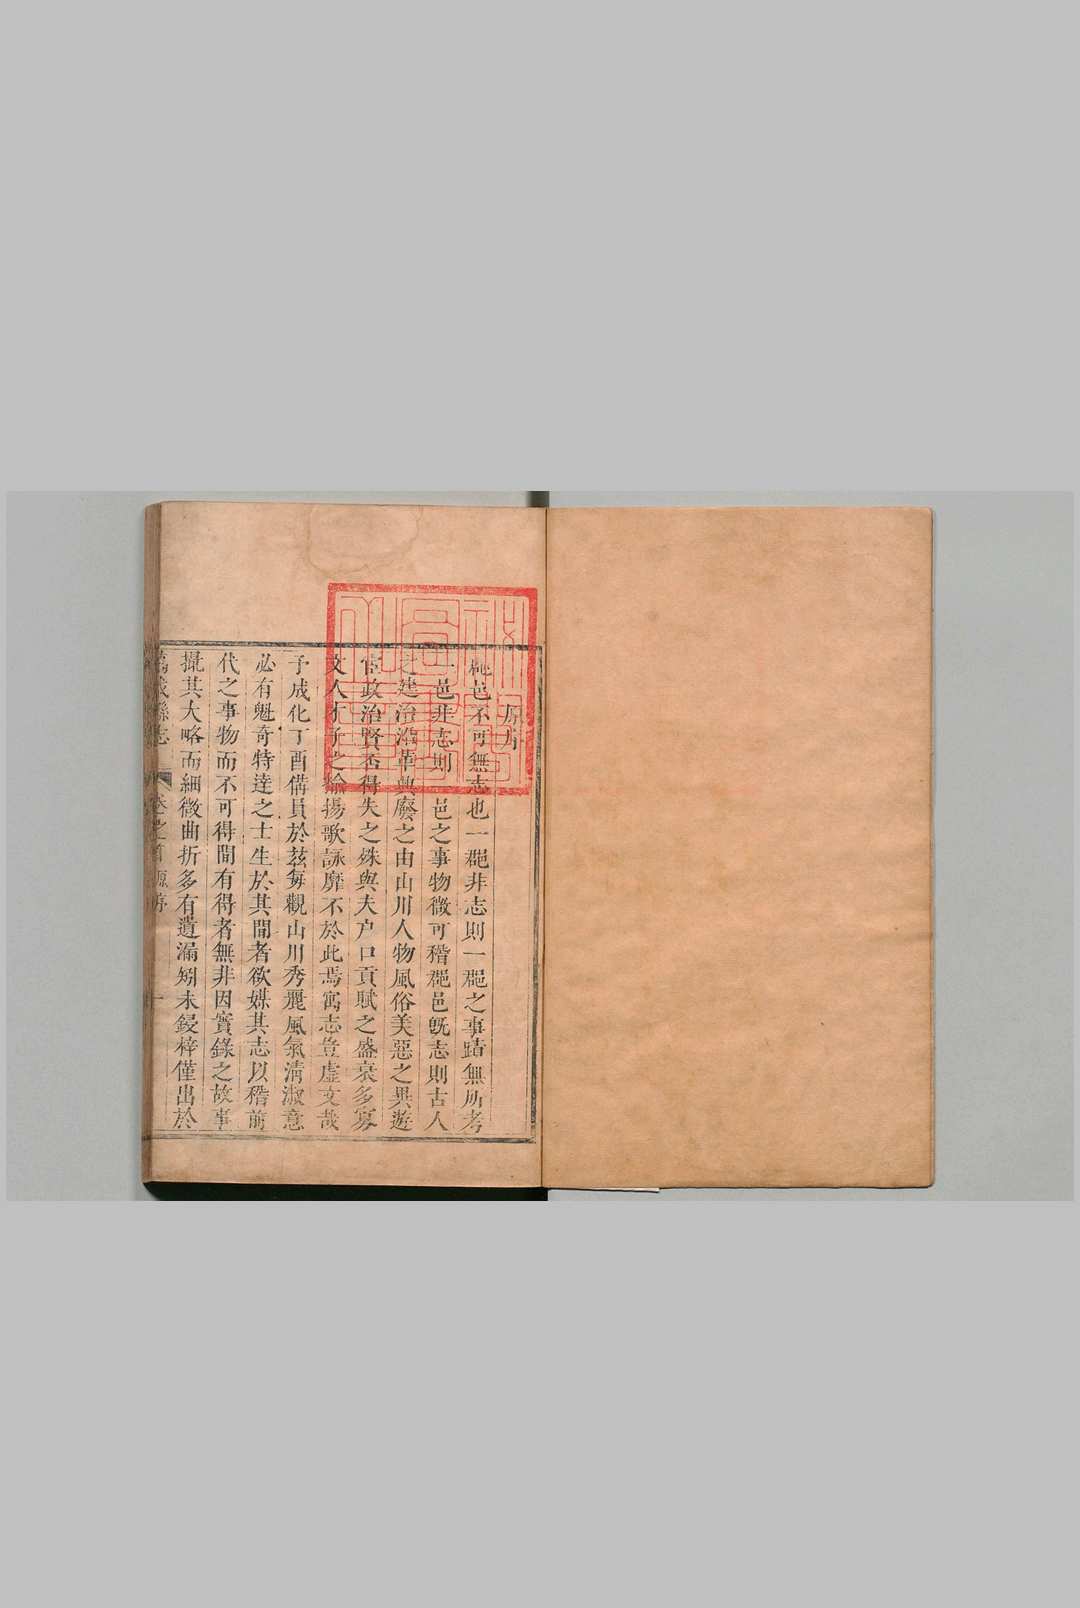 原序
郡邑不可無志也一郡非志則一郡之事蹟無所考
一邑非志則一邑之事物微可稽郡邑旣志則古人
之建治沿革興廢之由山川人物風俗美惡之異遊
官政治賢否得失之殊與夫户口貢賦之盛衰多寡
文人才子之揄揚歌詠靡不於此焉寓志豈虛文哉
予成化丁酉備員於兹每觀山川秀麗風氣淸淑意
必有魁奇特達之士生於其間者欲媒其志以稽前
代之事物而不可得間有得者無非因實錄之故事
撮其大略而細微曲折多有遺漏矧未鋟梓僅出於
萬載縣志 卷之首 原序 一